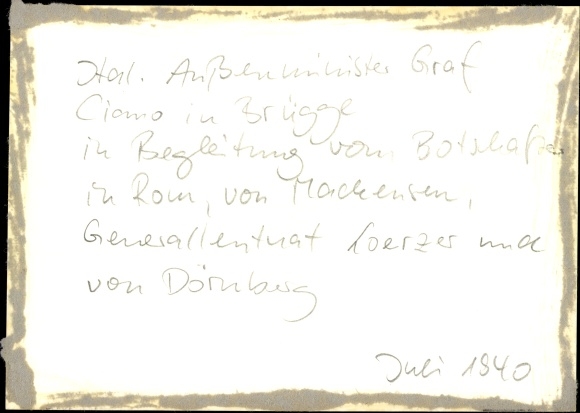 Ital. Außenminister Graf
Ciano in Brügge
in Begleitung vom Botschafter
in Rom, von Mackensen,
Generalleutnat Loerzer und
von Dörnberg
Juli 1940